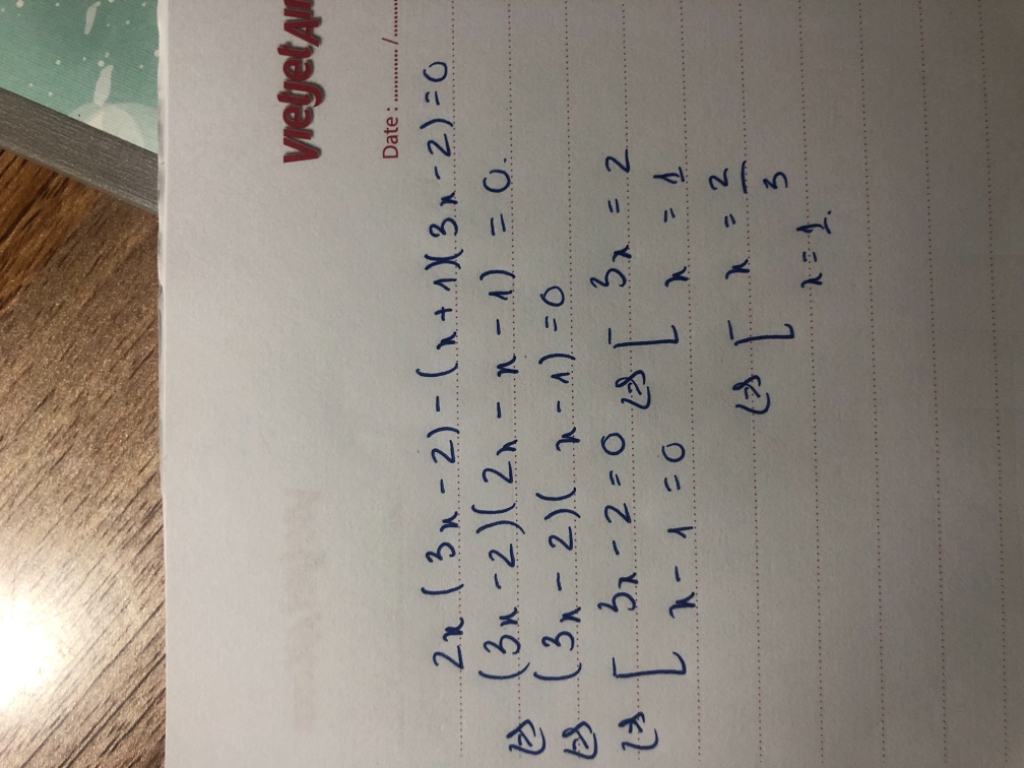 vietjetAir
Date : ........ / ....
2x(3x - 2) - (x + 1)(3x - 2) = 0
<=> (3x - 2)(2x - x - 1) = 0.
<=> (3x - 2)(x - 1) = 0
<=> [ 3x - 2 = 0 <=> [ 3x = 2
x - 1 = 0 x = 1
<=> [ x = 2/3
x = 1.